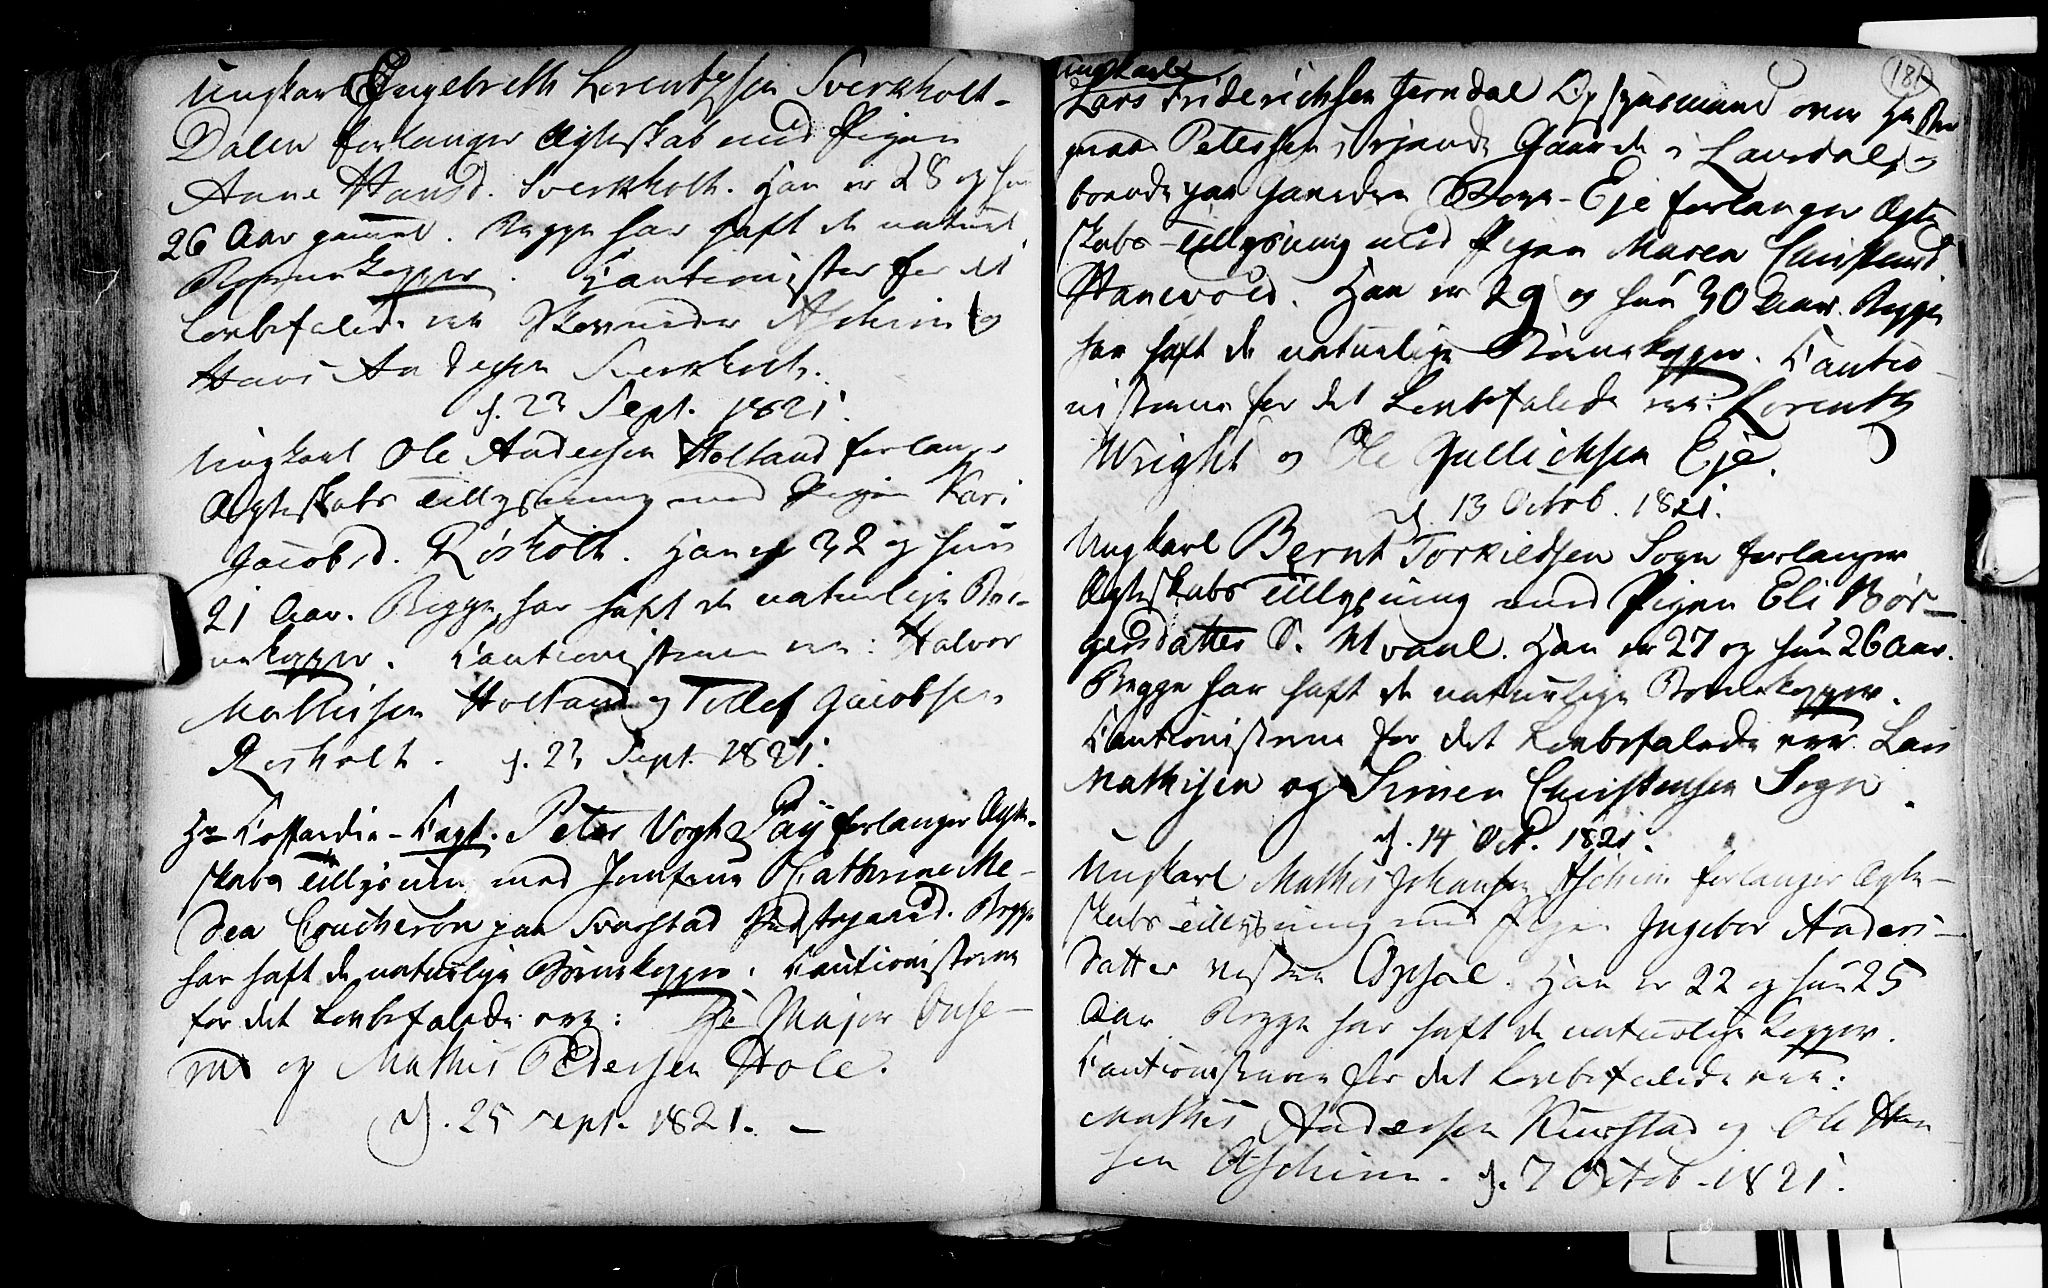 Ungkarl Engelbreth Lorentzsen Sverkholt-
Dalen forlanger Ægteskab med Pigen
Anne Hansd. Sverkholt. Han er 28 og hun
26 Aar gammel. Begge har haft de naturl.
Børnekopper. Cautionister for det
Lovbefalede ere Aschim og
Hans Andersen Sverkholt.
d. 23 Sept. 1821.
Ungkarl Ole Andersen Holtand forlanger
Ægteskabs Tillysning med Pigen Kari
Jacobsd. Røsholt. Han er 32 og hun
21 Aar. Begge har haft de naturlige Bør-
nekopper. Cautionisterne ere: Halvor
Mathisen Holtand og Tollef Jacobsen
Røsholt. d. 23 Sept. 1821.
Hr Coffardie-Capt. Peter Vogt Paÿ forlanger Ægte-
skabs Tillysning med Jomfrue Cathrine Me-
dea Coucheron paa Svarstad. Begge
har haft de naturlige Børnekopper. Cautionisterne
for det Lovbefalede ere: Hr Major
og Mathis Pedersen Hole.
d. 25 Sept. 1821. —
181
Ungkarl
Lars Friderichsen Jerndal Opsynsmand over Hr
Petersens ejende Gaarde i Laurdal,
boende paa Eje forlanger Ægte
skabs-Tillysning med Pigen Maren Christensd.
Hanevold. Han er 29 og hun 30 Aar. Begge
har haft de naturlige Børnekopper. Cautio-
nisterne for det Lovbefalede ere: Lorentz
Wright og Ole Gullichsen Eje.
d. 13 Octob. 1821.
Ungkarl Bernt Torkildsen Sogn forlanger
Ægteskabs Tillysning med Pigen Eli Bør-
gersdatter S. Moraul. Han er 27 og hun 26 Aar.
Begge har haft de naturlige Børnekopper.
Cautionisterne for det Lovbefalede ere: Lars
Mathisen og Simen Christensen Sogn.
d. 14 Oct. 1821.
Ungkarl Mathis Johansen Aschim forlanger Ægte-
skabs Tillysning med Pigen Ingebor Anders-
datter Opsal. Han er 22 og hun 25
Aar Begge har haft de naturlige Kopper.
Cautionisterne for det Lovbefalede ere:
Mathis Andersen Ruustad og Ole Han
sen Aschim. d. 7 Octob. 1821.